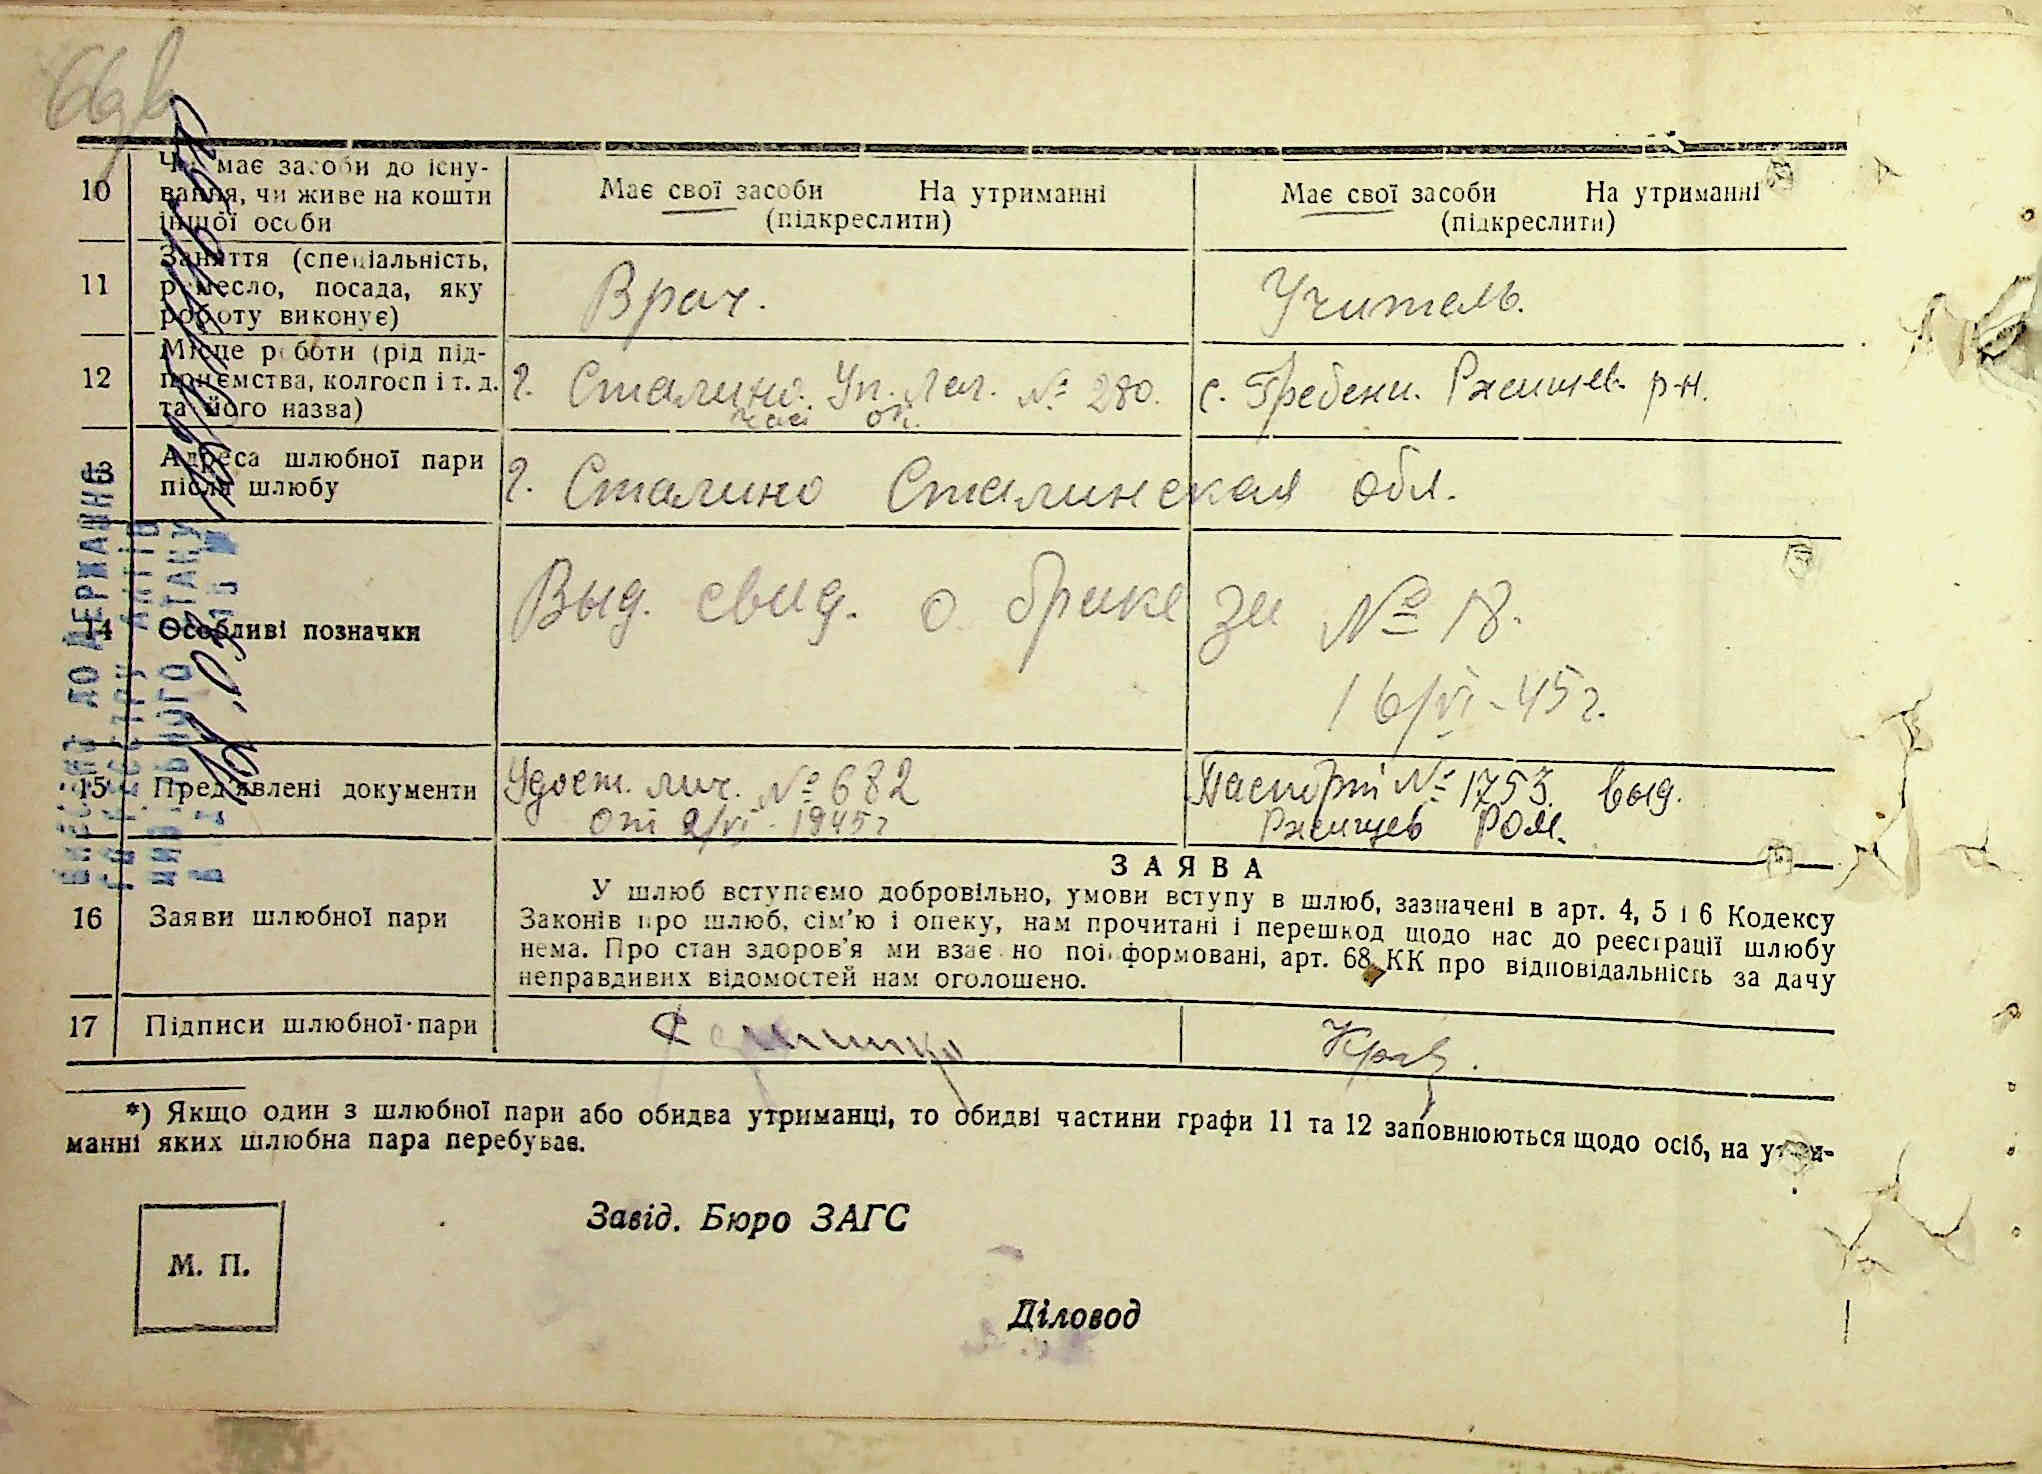 10
Чи має засоби до існу-
вання, чи живе на кошти
іншої особи
Має свої засоби На утриманні
(підкреслити)
Має свої засоби На утриманні
(підкреслити)
11
Заняття (спеціальність,
ремесло, посада, яку
роботу виконує)
Врач.
Учитель.
12
Місце роботи (рід під-
приємства, колгосп і т. д.
та його назва)
г. Сталино. Уп. Лаг. № 280.
с. Гребени. Ржищев. р-н.
13
Адреса шлюбної пари
після шлюбу
г. Сталино Сталинская обл.
14
Особливі позначки
Выд. свид. о браке за № 18.
16/VI-45 г.
15
Пред'явлені документи
Удост. лич. № 682
от 2/VI-1945 г
Паспорт № 1753. выд.
Ржищев РОМ.
16
Заяви шлюбної пари
ЗАЯВА
У шлюб вступаємо добровільно, умови вступу в шлюб, зазначені в арт. 4, 5 і 6 Кодексу
Законів про шлюб, сім'ю і опеку, нам прочитані і перешкод щодо нас до реєстрації шлюбу
нема. Про стан здоров'я ми взаємно поінформовані, арт. 68 КК про відповідальність за дачу
неправдивих відомостей нам оголошено.
17
Підписи шлюбної пари
*) Якщо один з шлюбної пари або обидва утриманці, то обидві частини графи 11 та 12 заповнюються щодо осіб, на утри-
манні яких шлюбна пара перебуває.
М. П.
Завід. Бюро ЗАГС
Діловод
ВНЕСЕНО ДО ДЕРЖАВНО
ГО РЕЄСТРУ АКТІВ
ЦИВІЛЬНОГО СТАНУ